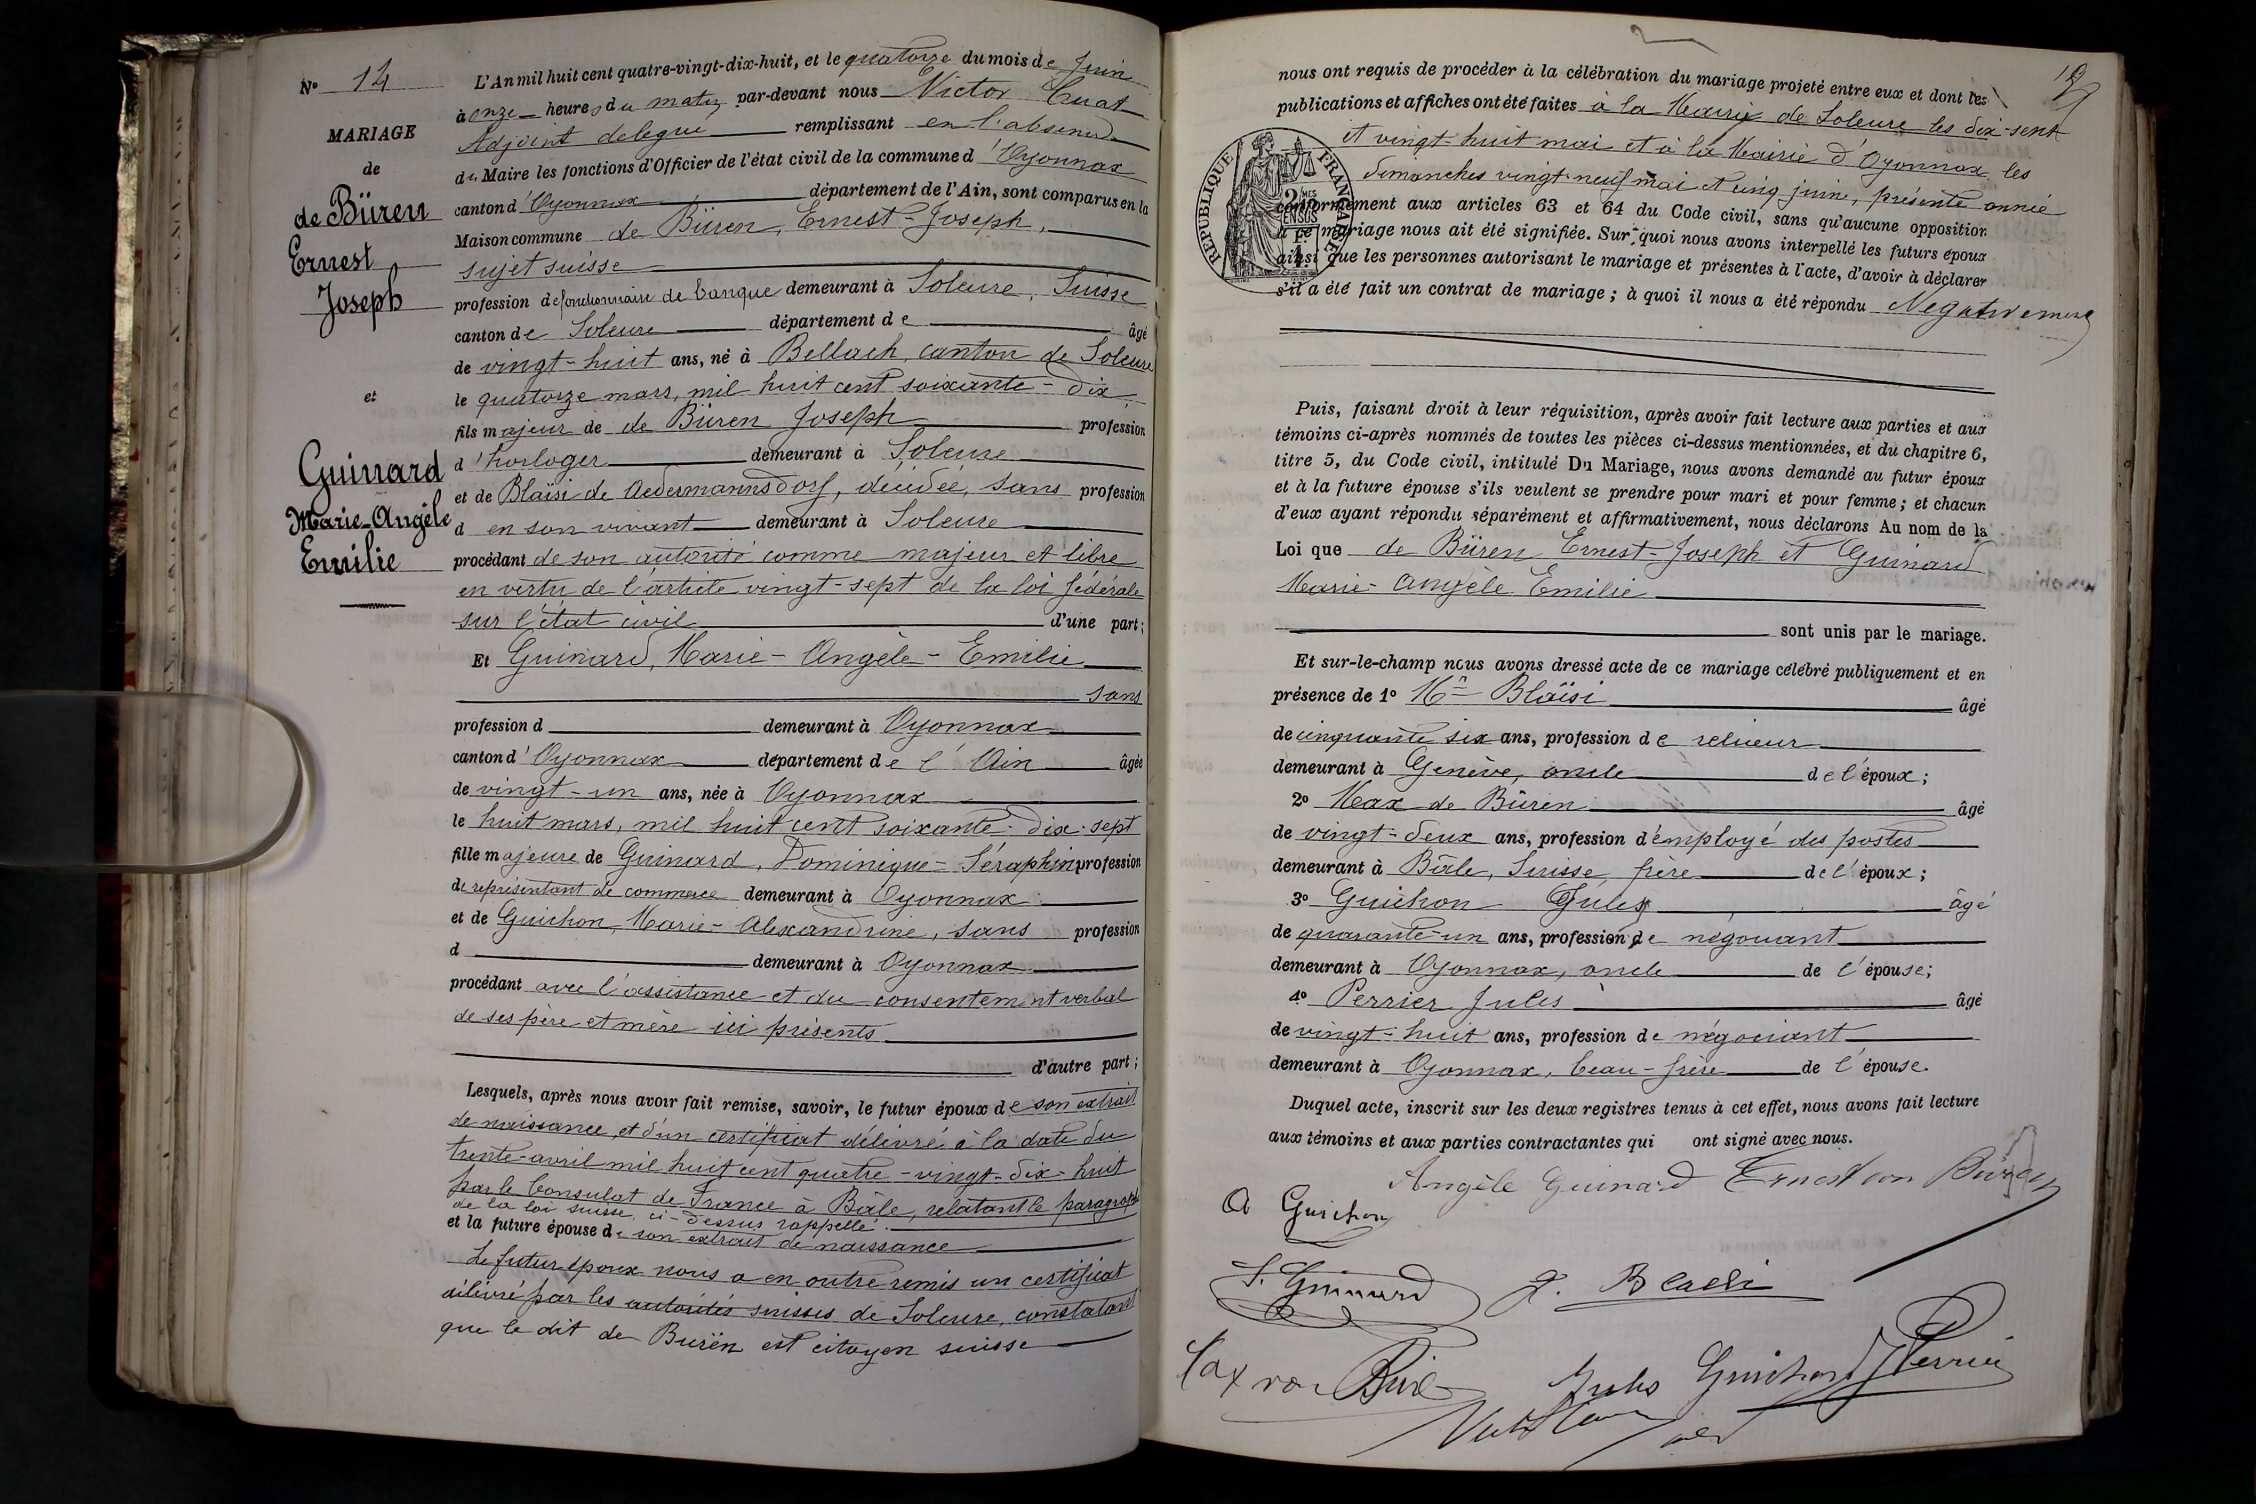 No 14
MARIAGE
de
de Büren
Ernest
Joseph
et
Guinard
Marie-Angèle
Emilie
L'An mil huit cent quatre-vingt-dix-huit, et le quatorze du mois de Juin
à onze heures du matin par-devant nous Victor
Adjoint délégué remplissant en l'absence
du Maire les fonctions d'Officier de l'état civil de la commune d'Oyonnax
canton d'Oyonnax département de l'Ain, sont comparus en la
Maison commune de Büren, Ernest-Joseph,
sujet suisse
profession de fonctionnaire de banque demeurant à Soleure, Suisse
canton de Soleure département de âgé
de vingt-huit ans, né à Bellach, canton de Soleure
le quatorze mars, mil huit cent soixante-dix
fils majeur de de Büren Joseph profession
d'horloger demeurant à Soleure
et de Blaïsi de Aedermannsdorf, décédée, sans profession
d en son vivant demeurant à Soleure
procédant de son autorité comme majeur et libre
en vertu de l'article vingt-sept de la loi fédérale
sur l'état civil d'une part;
Et Guinard, Marie-Angèle-Emilie
sans
profession d demeurant à Oyonnax
canton d'Oyonnax département de l'Ain âgée
de vingt-un ans, née à Oyonnax
le huit mars, mil huit cent soixante-dix-sept
fille majeure de Guinard, Dominique-Séraphin profession
de représentant de commerce demeurant à Oyonnax
et de Guichon, Marie-Alexandrine, sans profession
d demeurant à Oyonnax
procédant avec l'assistance et du consentement verbal
de ses père et mère ici présents
d'autre part;
Lesquels, après nous avoir fait remise, savoir, le futur époux de son extrait
de naissance, et d'un certificat délivré à la date du
trente-avril mil huit cent quatre-vingt-dix-huit
par le Consulat de France à Bâle, relatant le paragraphe
de la loi suisse, ci-dessus rappellé.
et la future épouse de son extrait de naissance
Le futur époux nous a en outre remis un certificat
délivré par les autorités suisses de Soleure, constatant
que le dit de Burën est citoyen suisse
nous ont requis de procéder à la célébration du mariage projeté entre eux et dont les
publications et affiches ont été faites à la Mairie de Soleure les dix-sept
et vingt-huit mai et à la Mairie d'Oyonnax les
dimanches vingt-neuf mai et cinq juin, présente année
REPUBLIQUE FRANÇAISE
conformément aux articles 63 et 64 du Code civil, sans qu'aucune opposition
à ce mariage nous ait été signifiée. Sur quoi nous avons interpellé les futurs époux
ainsi que les personnes autorisant le mariage et présentes à l'acte, d'avoir à déclarer
s'il a été fait un contrat de mariage; à quoi il nous a été répondu Négativement
Puis, faisant droit à leur réquisition, après avoir fait lecture aux parties et aux
témoins ci-après nommés de toutes les pièces ci-dessus mentionnées, et du chapitre 6,
titre 5, du Code civil, intitulé Du Mariage, nous avons demandé au futur époux
et à la future épouse s'ils veulent se prendre pour mari et pour femme; et chacun
d'eux ayant répondu séparément et affirmativement, nous déclarons Au nom de la
Loi que de Büren Ernest-Joseph et Guinard
Marie-Angèle Emilie
sont unis par le mariage.
Et sur-le-champ nous avons dressé acte de ce mariage célébré publiquement et en
présence de 1o Mr Blaïsi âgé
de cinquante six ans, profession de relieur
demeurant à Genève, oncle de l'époux;
2o Max de Büren âgé
de vingt-deux ans, profession d'employé des postes
demeurant à Bâle, Suisse, frère de l'époux;
3o Guichon Jules âgé
de quarante-un ans, profession de négociant
demeurant à Oyonnax, oncle de l'épouse;
4o Perrier Jules âgé
de vingt-huit ans, profession de négociant
demeurant à Oyonnax, beau-frère de l'épouse.
Duquel acte, inscrit sur les deux registres tenus à cet effet, nous avons fait lecture
aux témoins et aux parties contractantes qui ont signé avec nous.
Angèle Guinard Ernest von Büren
A Guichon
S. Guinard J. Blaesi
Max von Büren Jules Guichon J Perrier